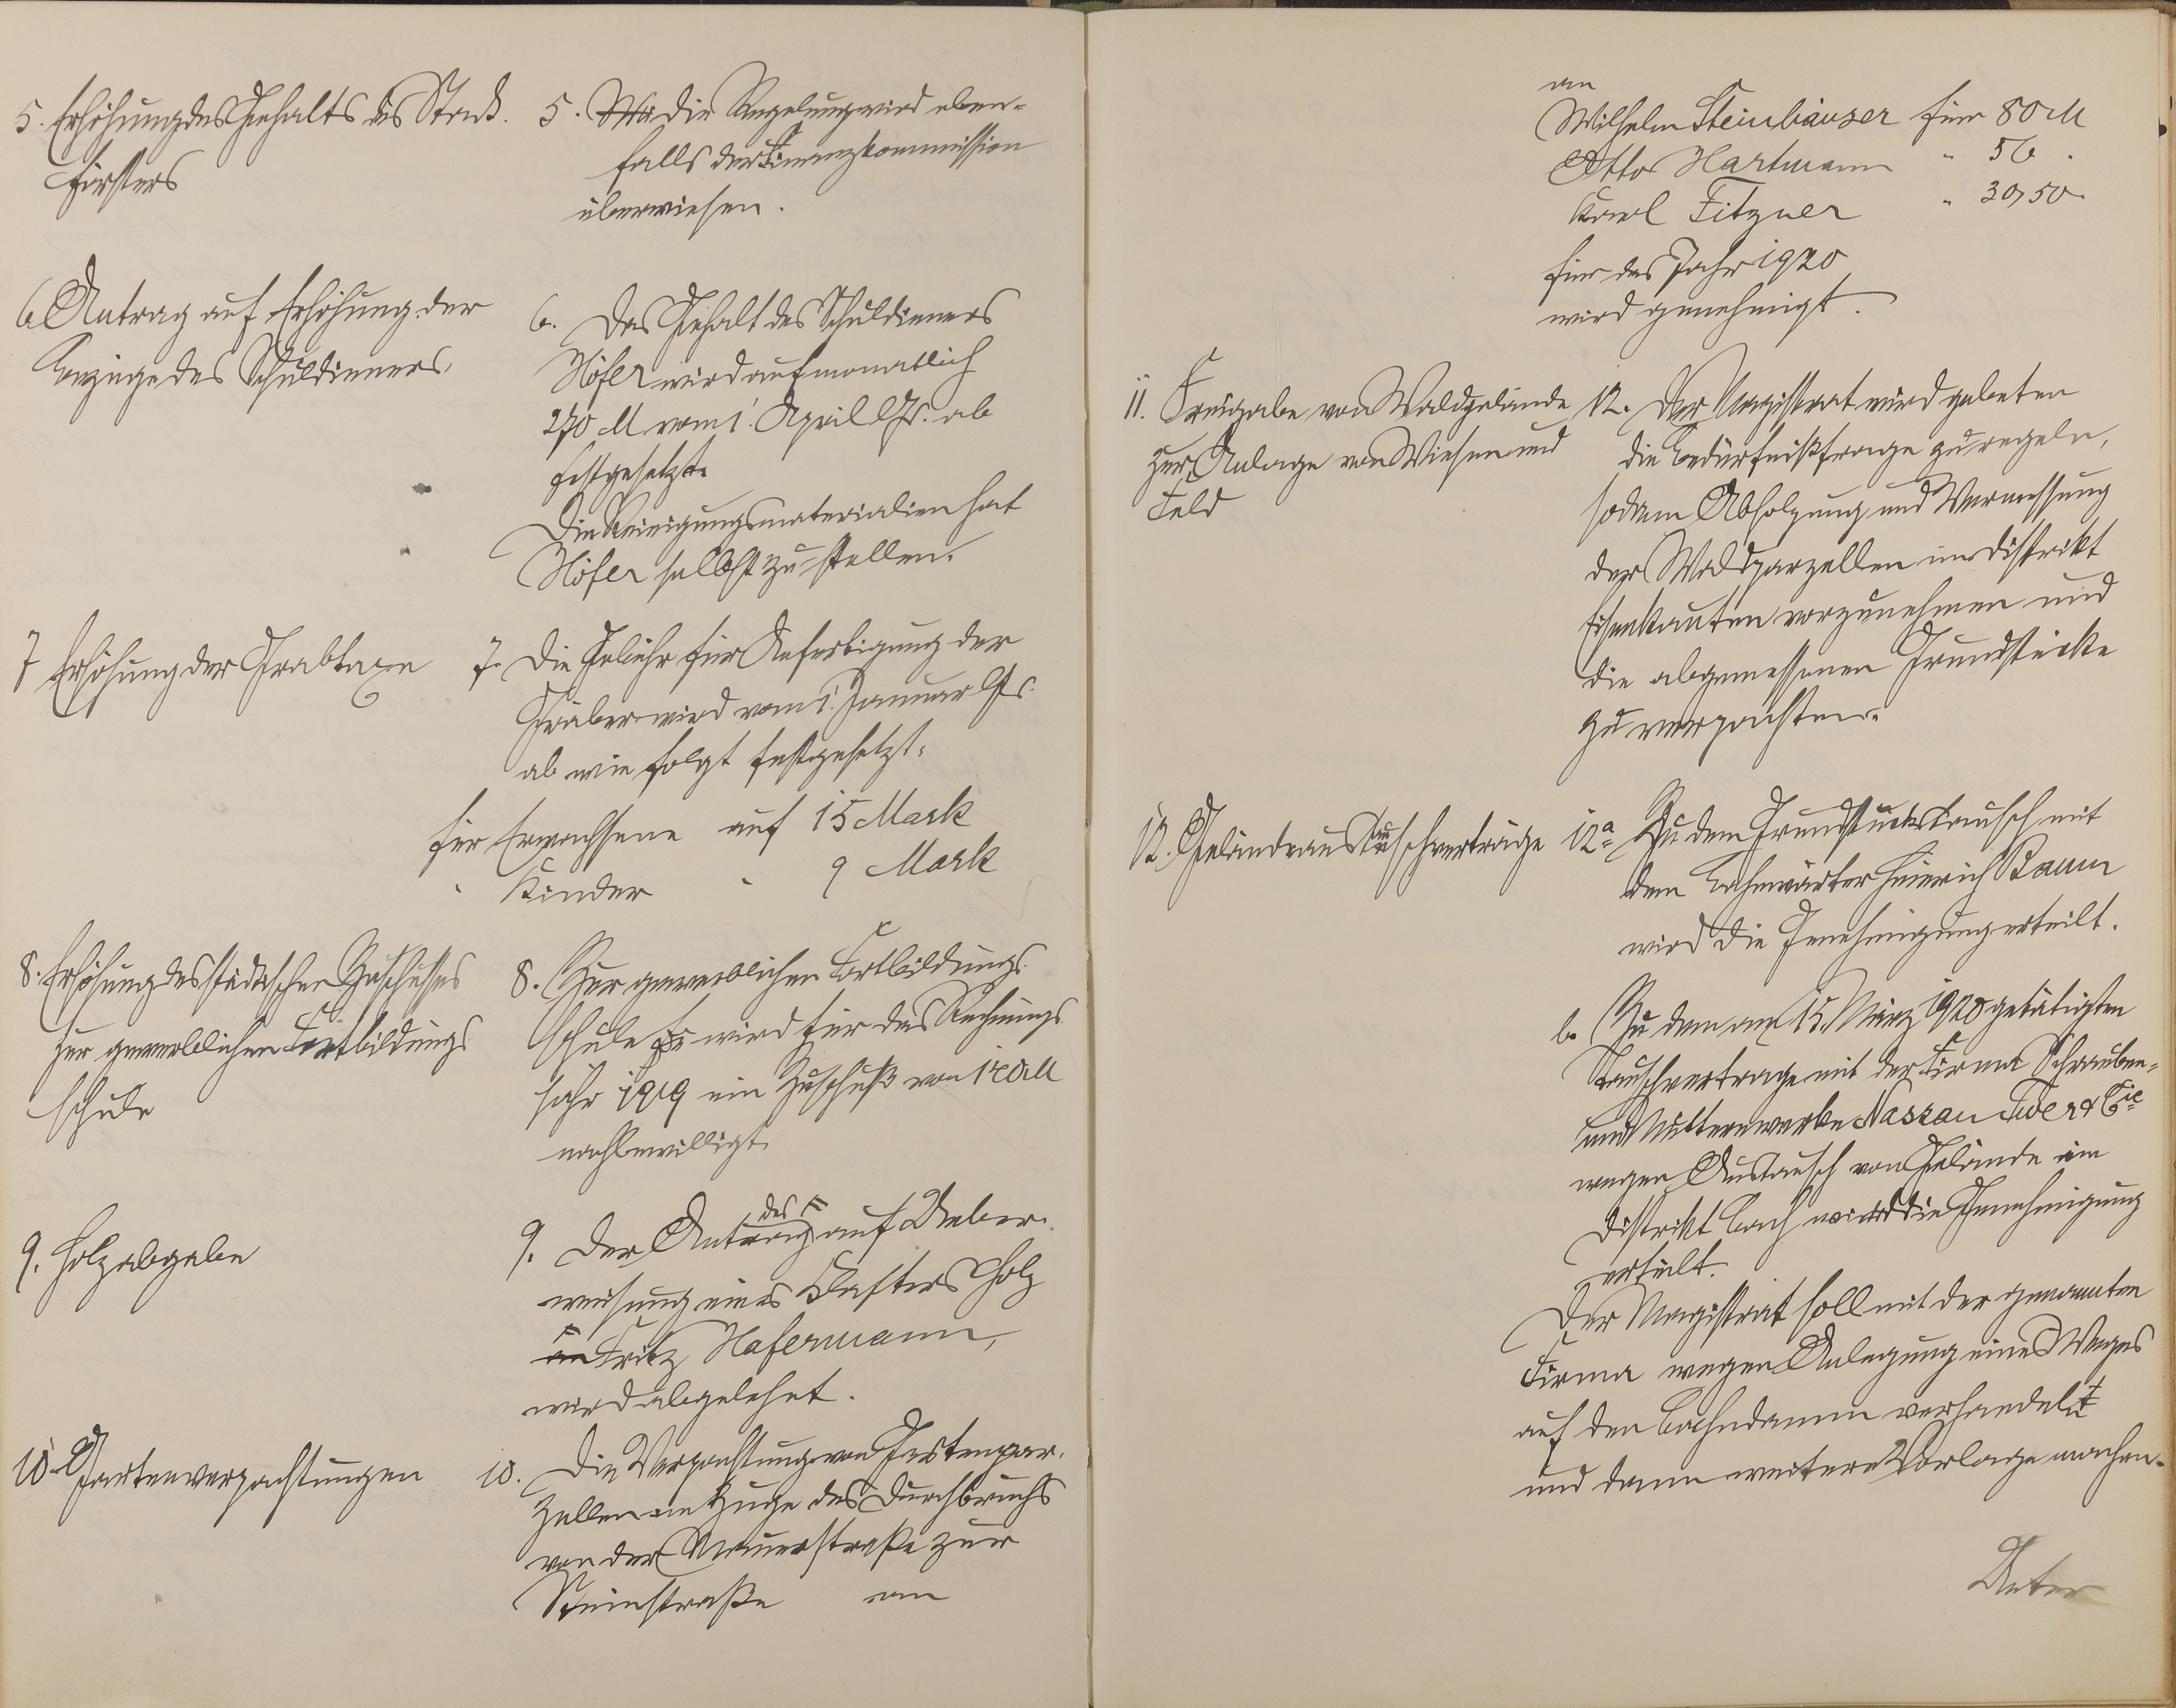 5. Erhöhung des Gehalts des Stadt-
försters
5. Die Regelung wird eben-
falls der Finanzkommission
überwiesen.
6 Antrag auf Erhöhung der
Bezüge des Schuldieners.
6. Das Gehalt des Schuldieners
Höfer wird auf monatlich
270 M vom 1. April ds. Js. ab
festgesetzt.
Die Reinigungsmaterialien hat
Höfer selbst zu stellen.
7 Erhöhung der Grabtaxe
7. Die Gebühr für Anfertigung der
Gräber wird vom 1. Januar ds. Js.
ab wie folgt festgesetzt:
für Erwachsene auf 15 Mark
" Kinder " 9 Mark
8. Erhöhung des städtischen Zuschusses
zur gewerblichen Fortbildungs
schule
8. Zur gewerblichen Fortbildungs
schule wird für das Rechnungs
jahr 1919 ein Zuschuß von
nachbewilligt.
9. Holzabgabe
9. Der Antrag des auf Ueber-
weisung eines Klafters Holz
an Fritz Hafermann,
wird abgelehnt.
10 Gartenverpachtungen
10. Die Verpachtung von Gartenpar-
zellen im Zuge des Durchbruchs
von der Mauerstraße zur
Steinstraße an
an
Wilhelm Steinhäuser für 80 M
Otto Hartmann " 56 "
Karl Fitzner " 30,50 "
für das Jahr 1920
wird genehmigt.
11. Freigabe von Waldgelände
zur Anlage von Wiesen und
Feld
12. Der Magistrat wird gebeten
die Bedürfnißfrage zu regeln,
sodann Abholzung und Vermessung
der Waldparzellen im Distrikt
Eisenkauten vorzunehmen und
die abgemessenen Grundstücke
zu verpachten.
12. Geländeaustauschverträge
12a Zu dem Grundstückstausch mit
dem Bahnwärter Heinrich Baum
wird die Genehmigung erteilt.
b. Zu dem am 15. März 1920 getätigten
Tauschvertrage mit der Firma Schrauben-
und Mutternwerke Nassau & Cie
wegen Austausch von Gelände im
Distrikt Bach wird die Genehmigung
erteilt.
Der Magistrat soll mit der genannten
Firma wegen Anlegung eines Weges
auf den Bahndamm verhandeln
und dann weitere Vorlage machen.
Unter